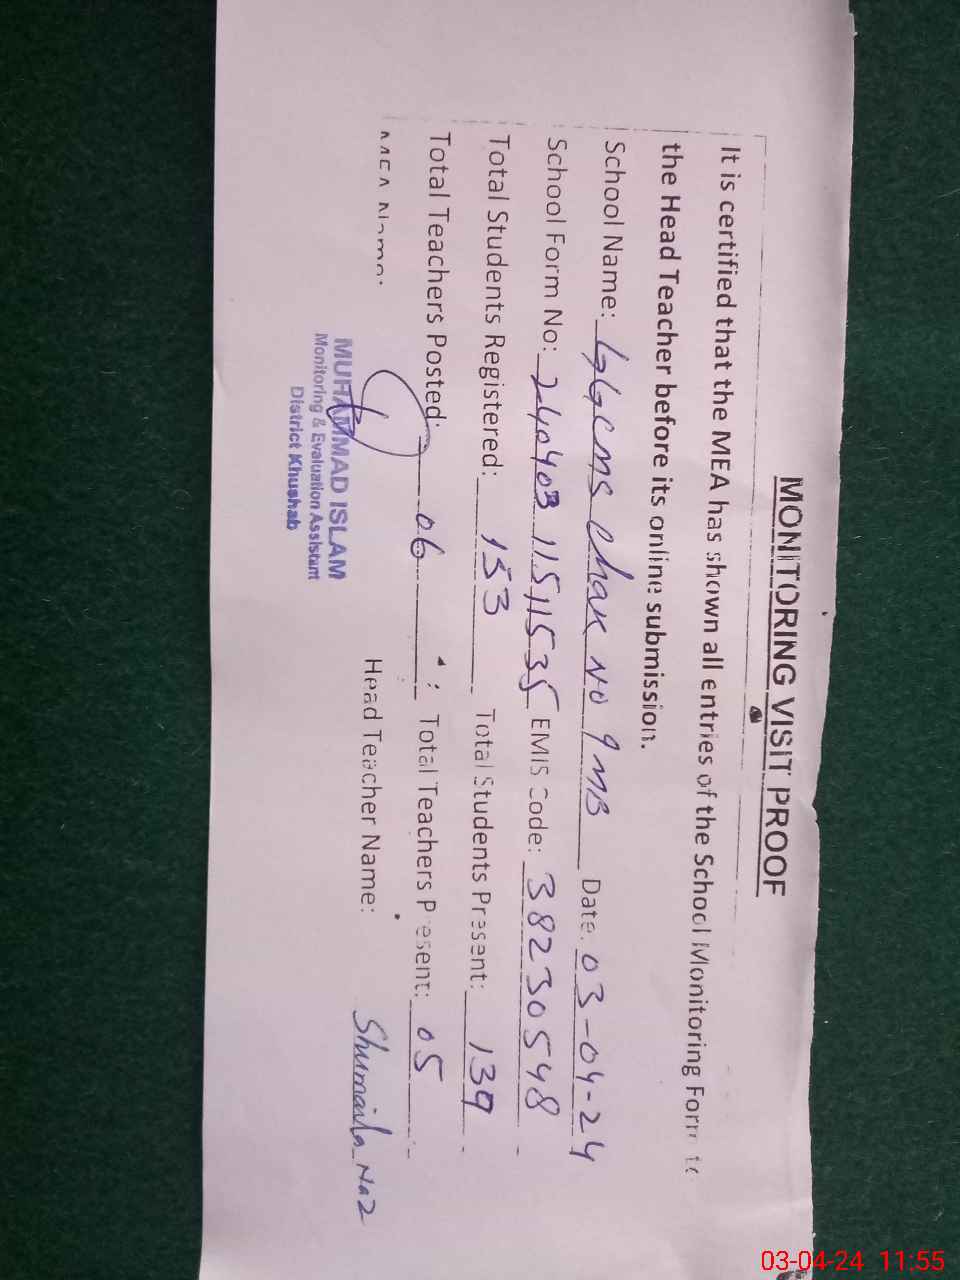 MONITORING VISIT PROOF
It is certified that the MEA has shown all entries of the School Monitoring Form to
the Head Teacher before its online submission.
School Name: GGCMS Chak No 9 MB Date: 03-04-24
School Form No: 240403 11511535 EMIS Code: 38230548
Total Students Registered: 153 Total Students Present: 139
Total Teachers Posted: 06 Total Teachers Present: 05
MEA Name: Head Teacher Name: Shumaila Naz
MUHAMMAD ISLAM
Monitoring & Evaluation Assistant
District Khushab
03-04-24 11:55